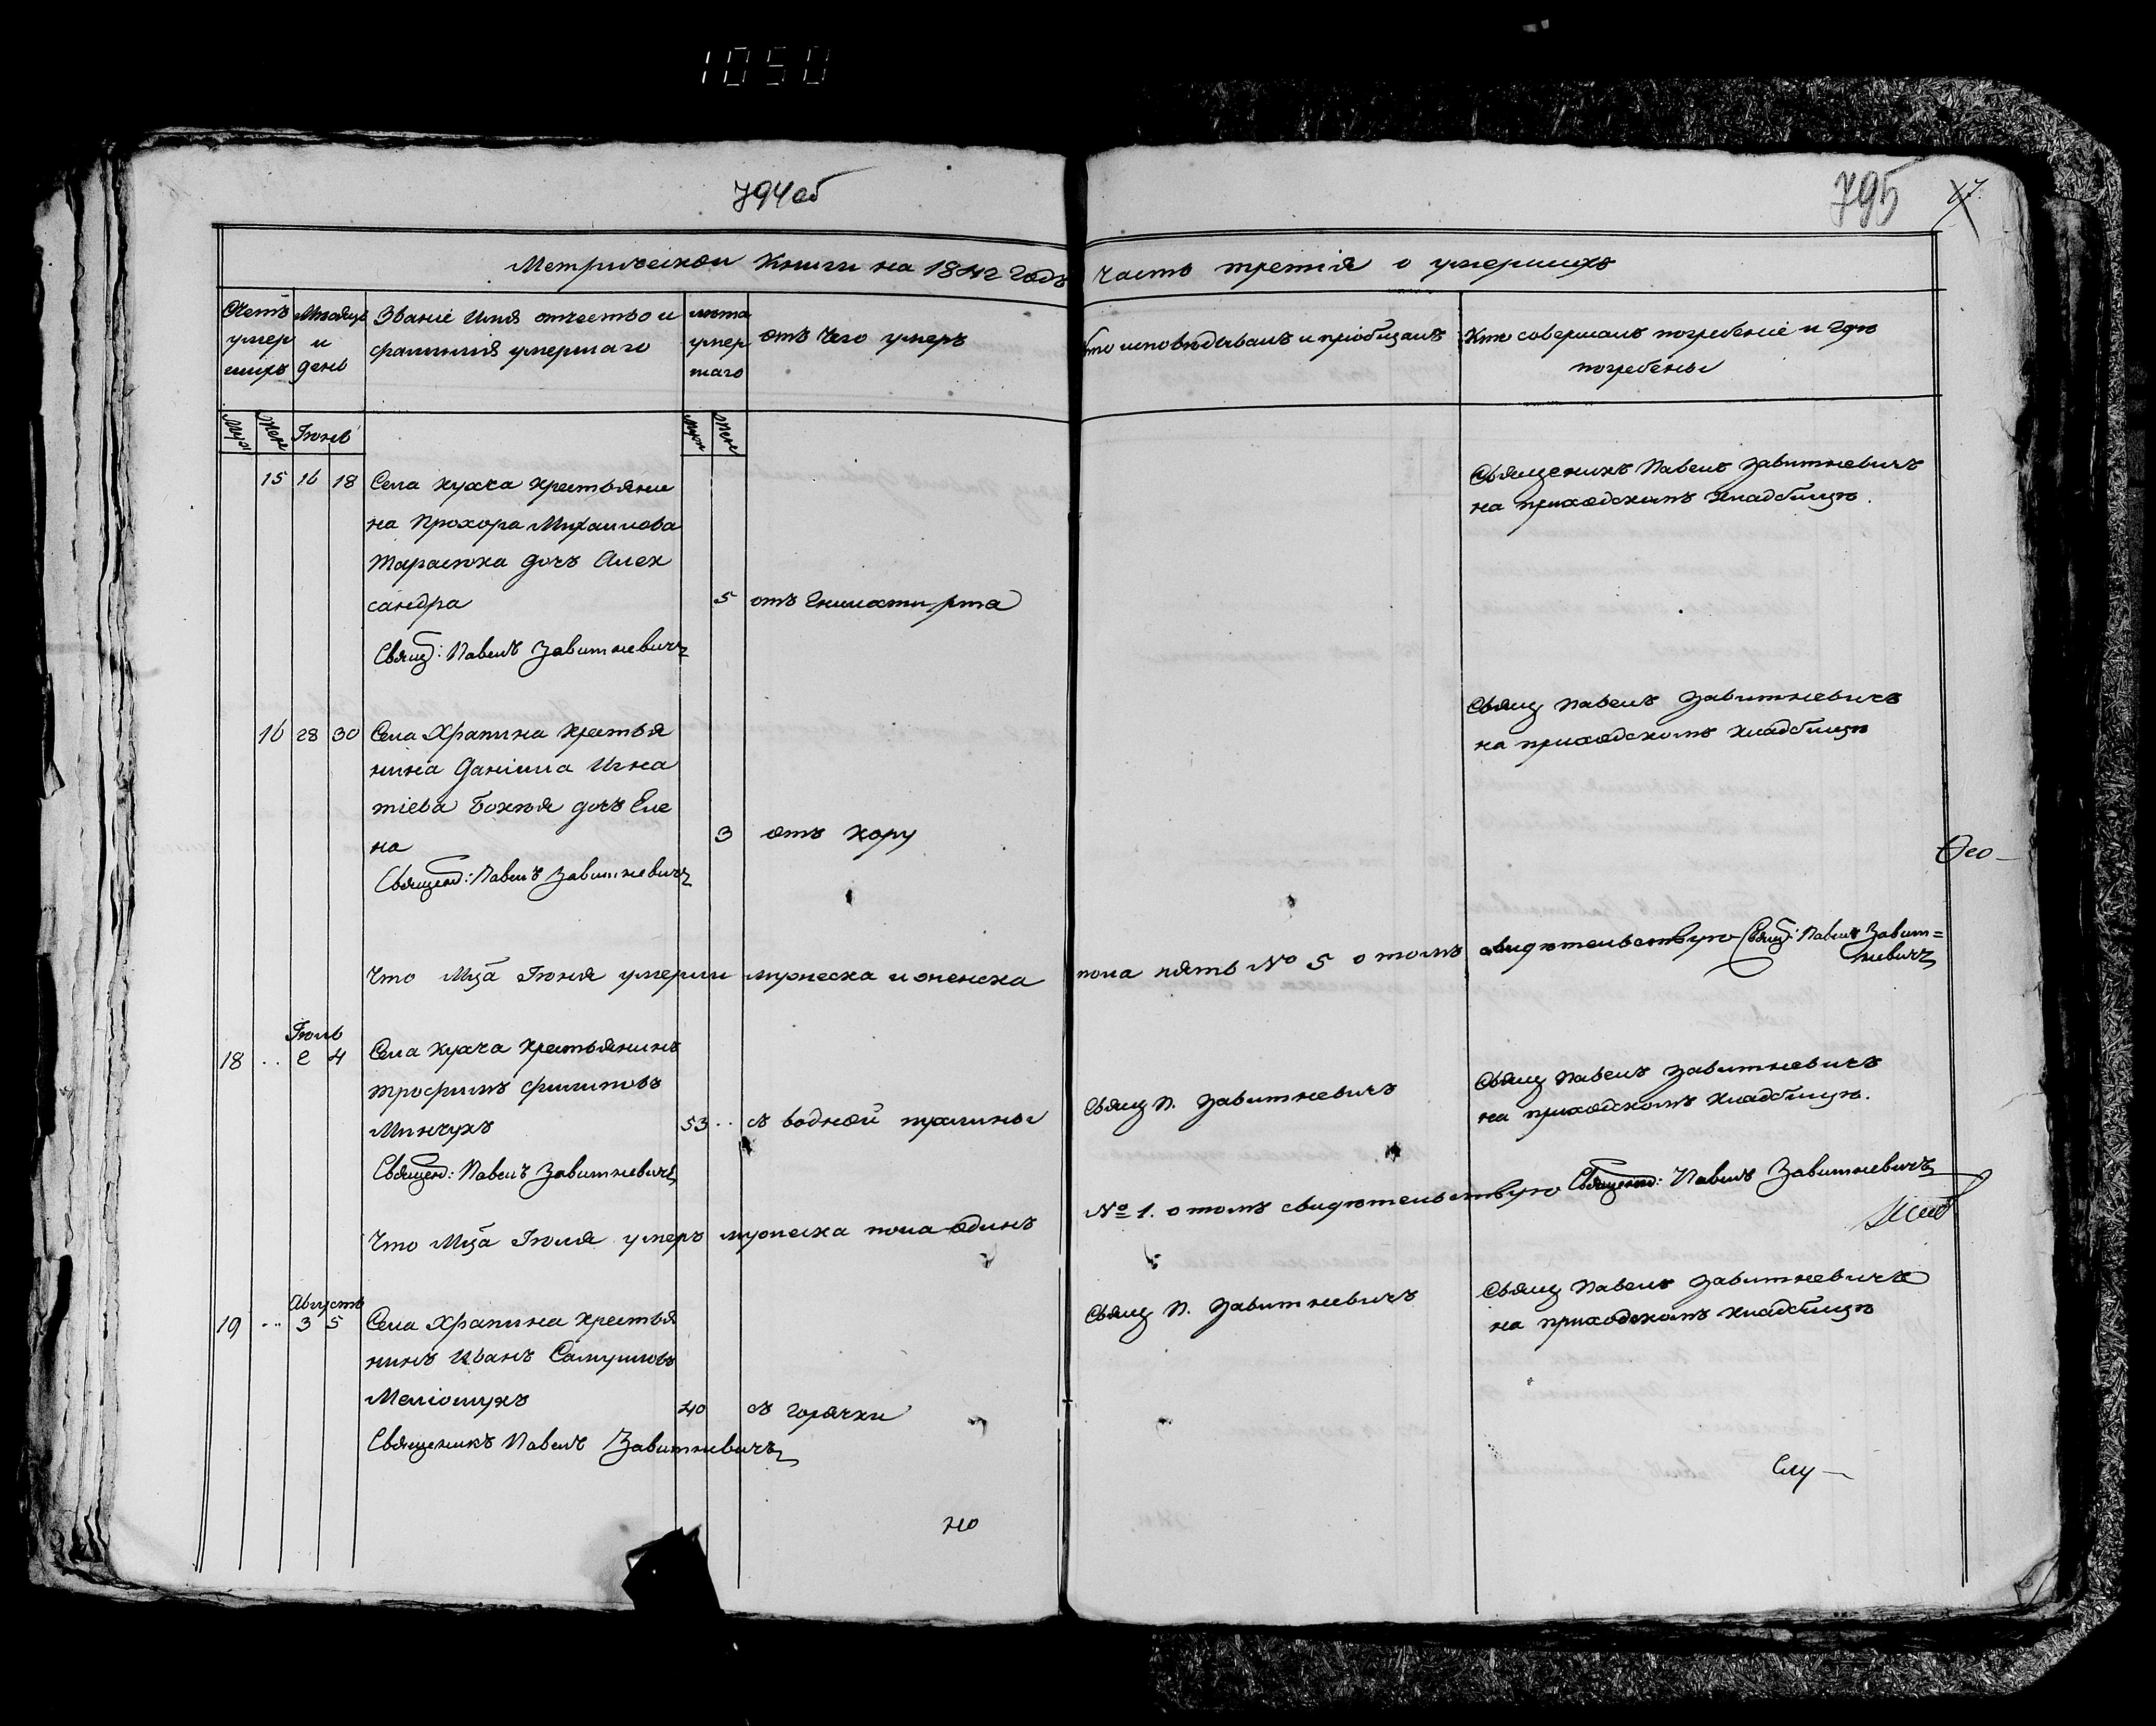 1050
794об
795
17.
Метрической Книги на 1842 Годъ часть третія о умершихъ
Счетъ умер шихъ
Мѣсяцъ и день
Званіе имя отчество и фамилия умершаго
лѣта умер шаго
отъ чего умеръ
Кто исповѣдывалъ и пріобщалъ
Кто совершалъ погребеніе и гдѣ погребены
Муж Жен Іюнь
Муж Жен
15 16 18 Села Кухча крестьяни
на Прохора Михаилова
Тарасюка дочь Алек
сандра 5 отъ гнилости рта
Свящ: Павелъ Завитневичъ
Священикъ Павелъ Завитневичъ
на приходскомъ кладбищѣ.
16 28 30 Села Храпина крестья
нина Даніила Игна
тіева Бохнѣя дочь Еле
на 3 отъ кору
Священ: Павелъ Завитневичъ
Свящ Павелъ Завитневичъ
на приходскомъ кладбищѣ
Ѳео-
Что Мца Іюня умерли мужеска и женска пола пять № 5 о томъ свидѣтельствую Свящ: Павелъ Завит=
невичъ
Іюль
18 .. 2 4 Села Кухча крестьянинъ
Трофимъ Филиповъ
Минчукъ 53 .. съ водной пухлины
Священ: Павелъ Завитневичъ
Свящ П. Завитневичъ
Свящ Павелъ Завитневичъ
на приходскомъ кладбищѣ.
Что Мца Іюля умеръ мужеска пола одинъ № 1. о томъ свидѣтельствую Священ: Павелъ Завитневичъ
Августъ
19 .. 3 5 Села Храпина крестья
нинъ Иванъ Самуиловъ
40 съ горячки
Священикъ Павелъ Завитневичъ
Свящ П. Завитневичъ
Свящ Павелъ Завитневичъ
на приходскомъ кладбищѣ
Слу-